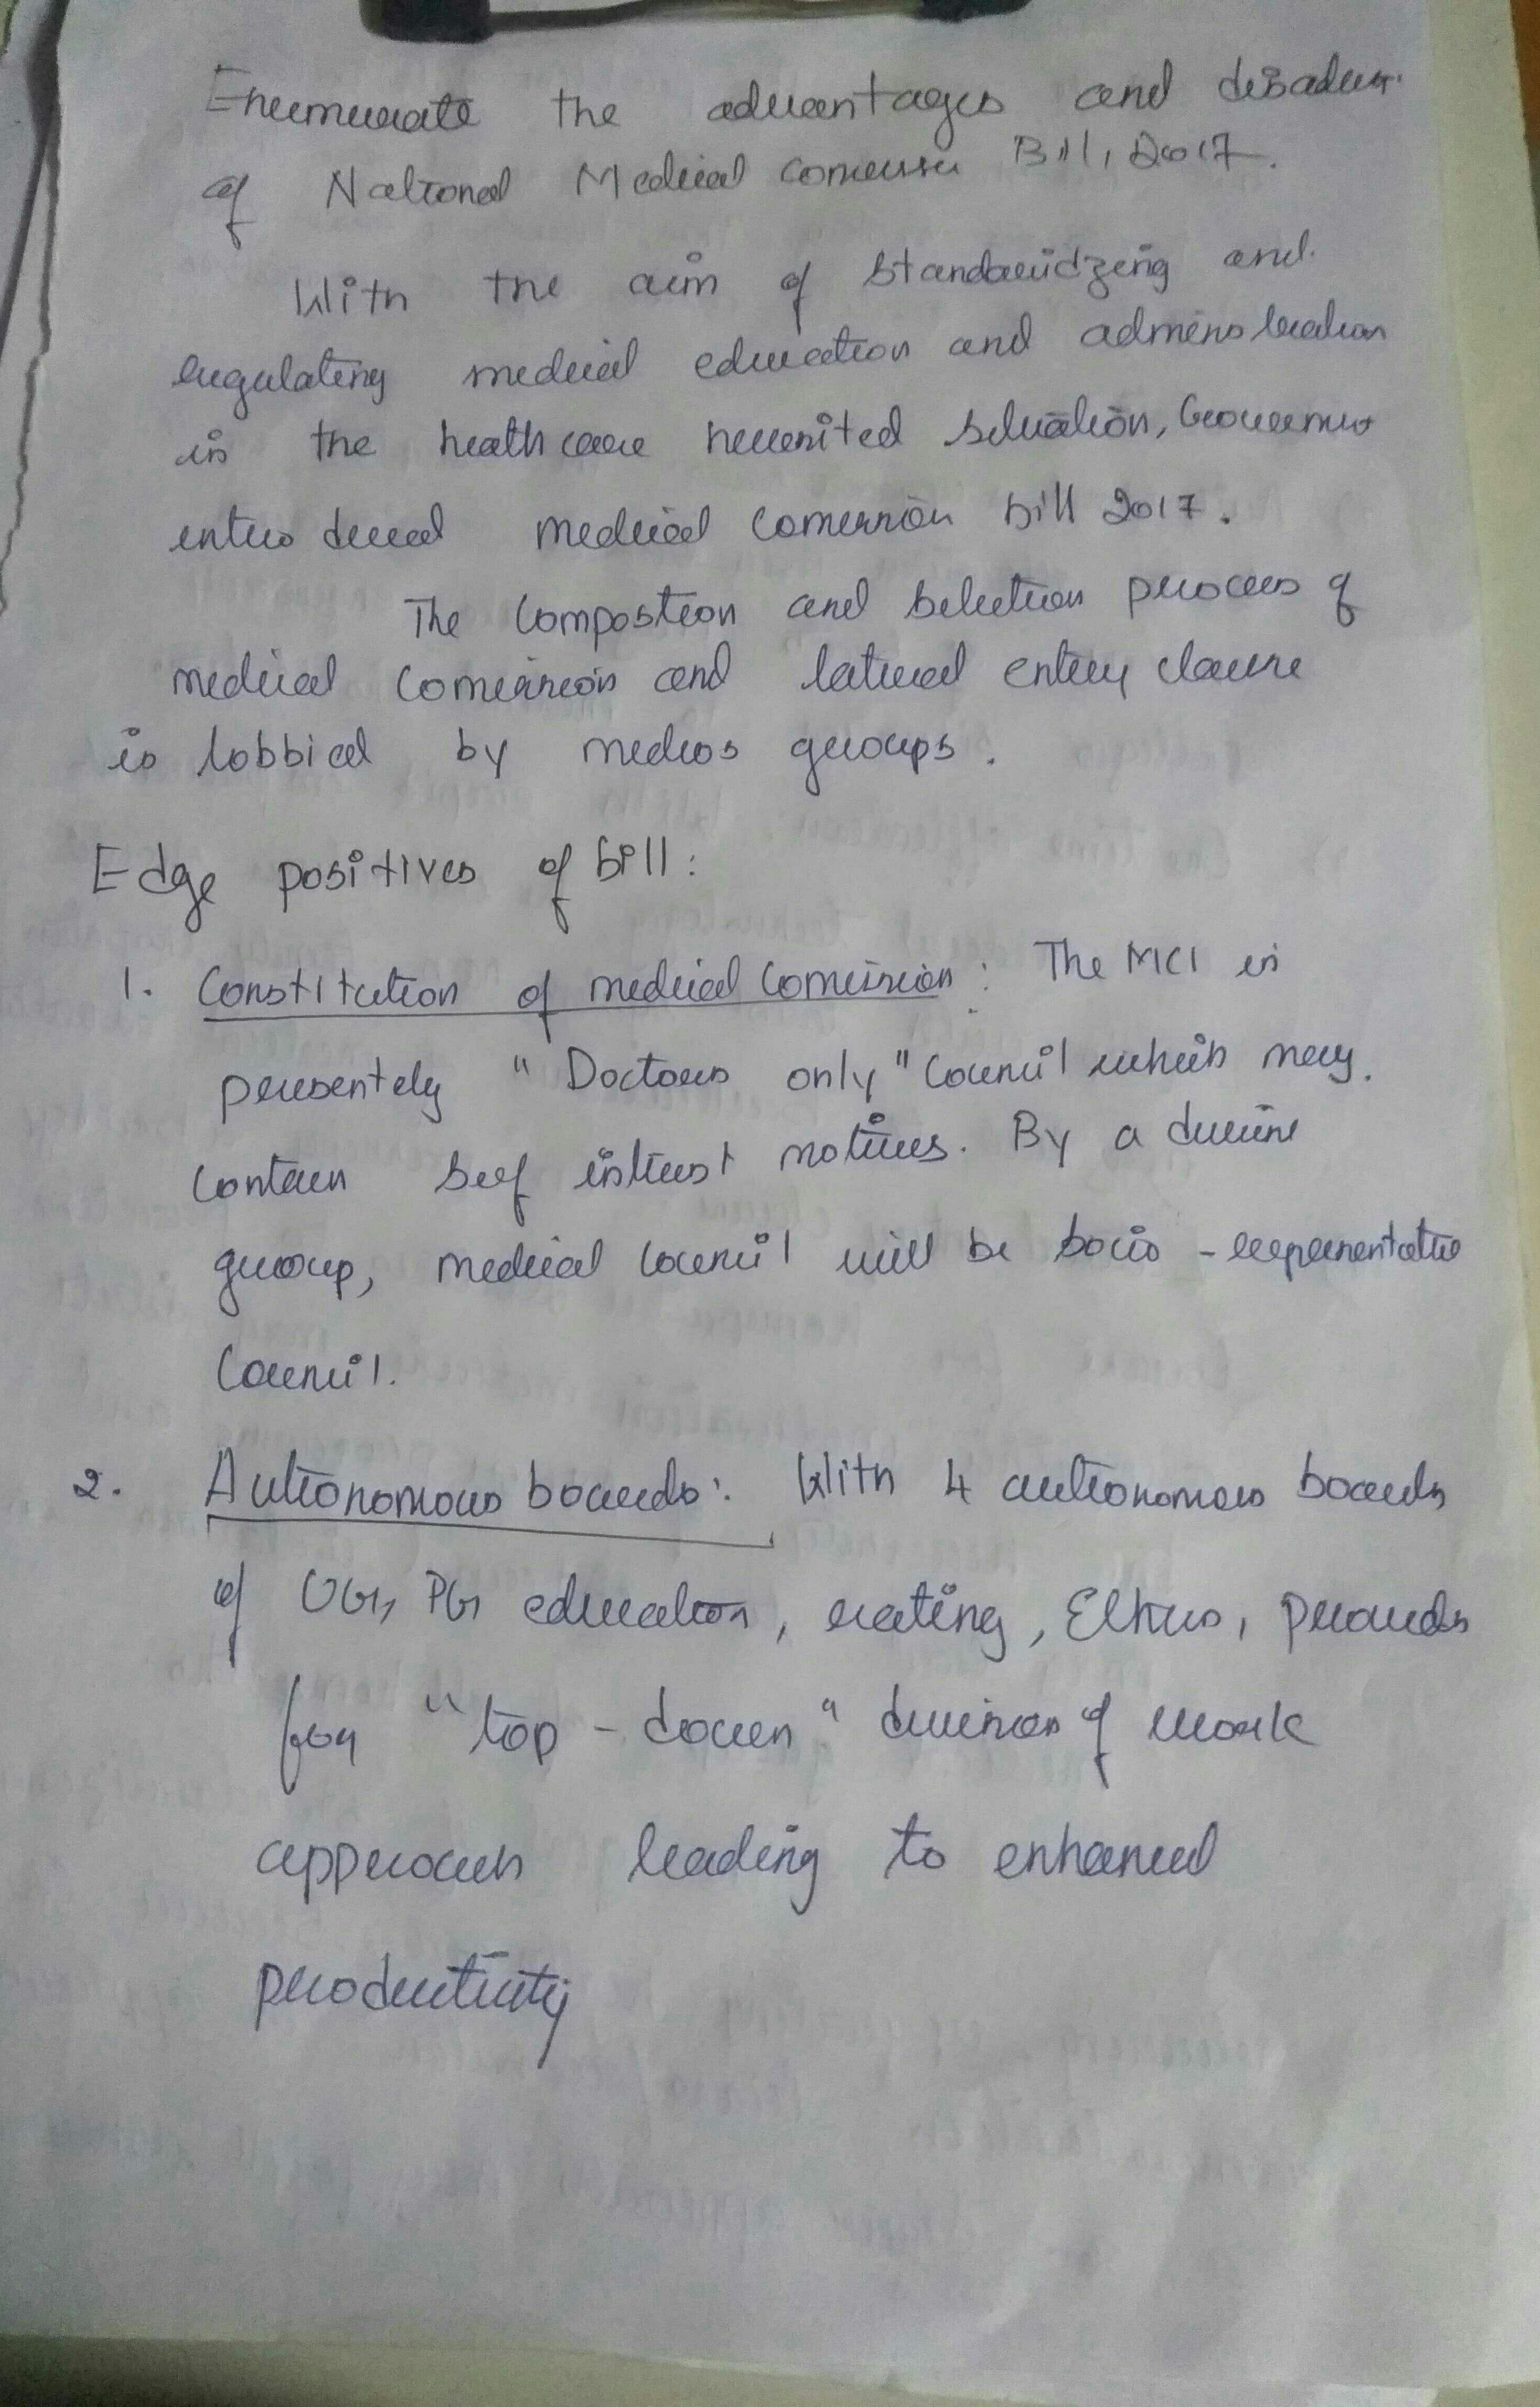 Enumurate the advantages and disadvan.
of National Medical Comission Bill, 2017.
With the aim of standardizing and
regulating medical education and adminstration
in the heathcare situation, Government
introduced medical comission bill 2017.
The Compostion and selection process of
medical comission and lateral entry clause
is lobbied by medicos groups.
Edge positives of bill:
1. Constitution of medical Comission: The MCI is
presentely "Doctors only" Council which may
contain self intrest motives. By a diverse
group, medical Council will be socio - representative
Council.
2. Autonomous boards: With 4 autonomous boards
of UG, PG education, rating, Ethics, provides
for "top - down" division of work
approach leading to enhanced
productivity